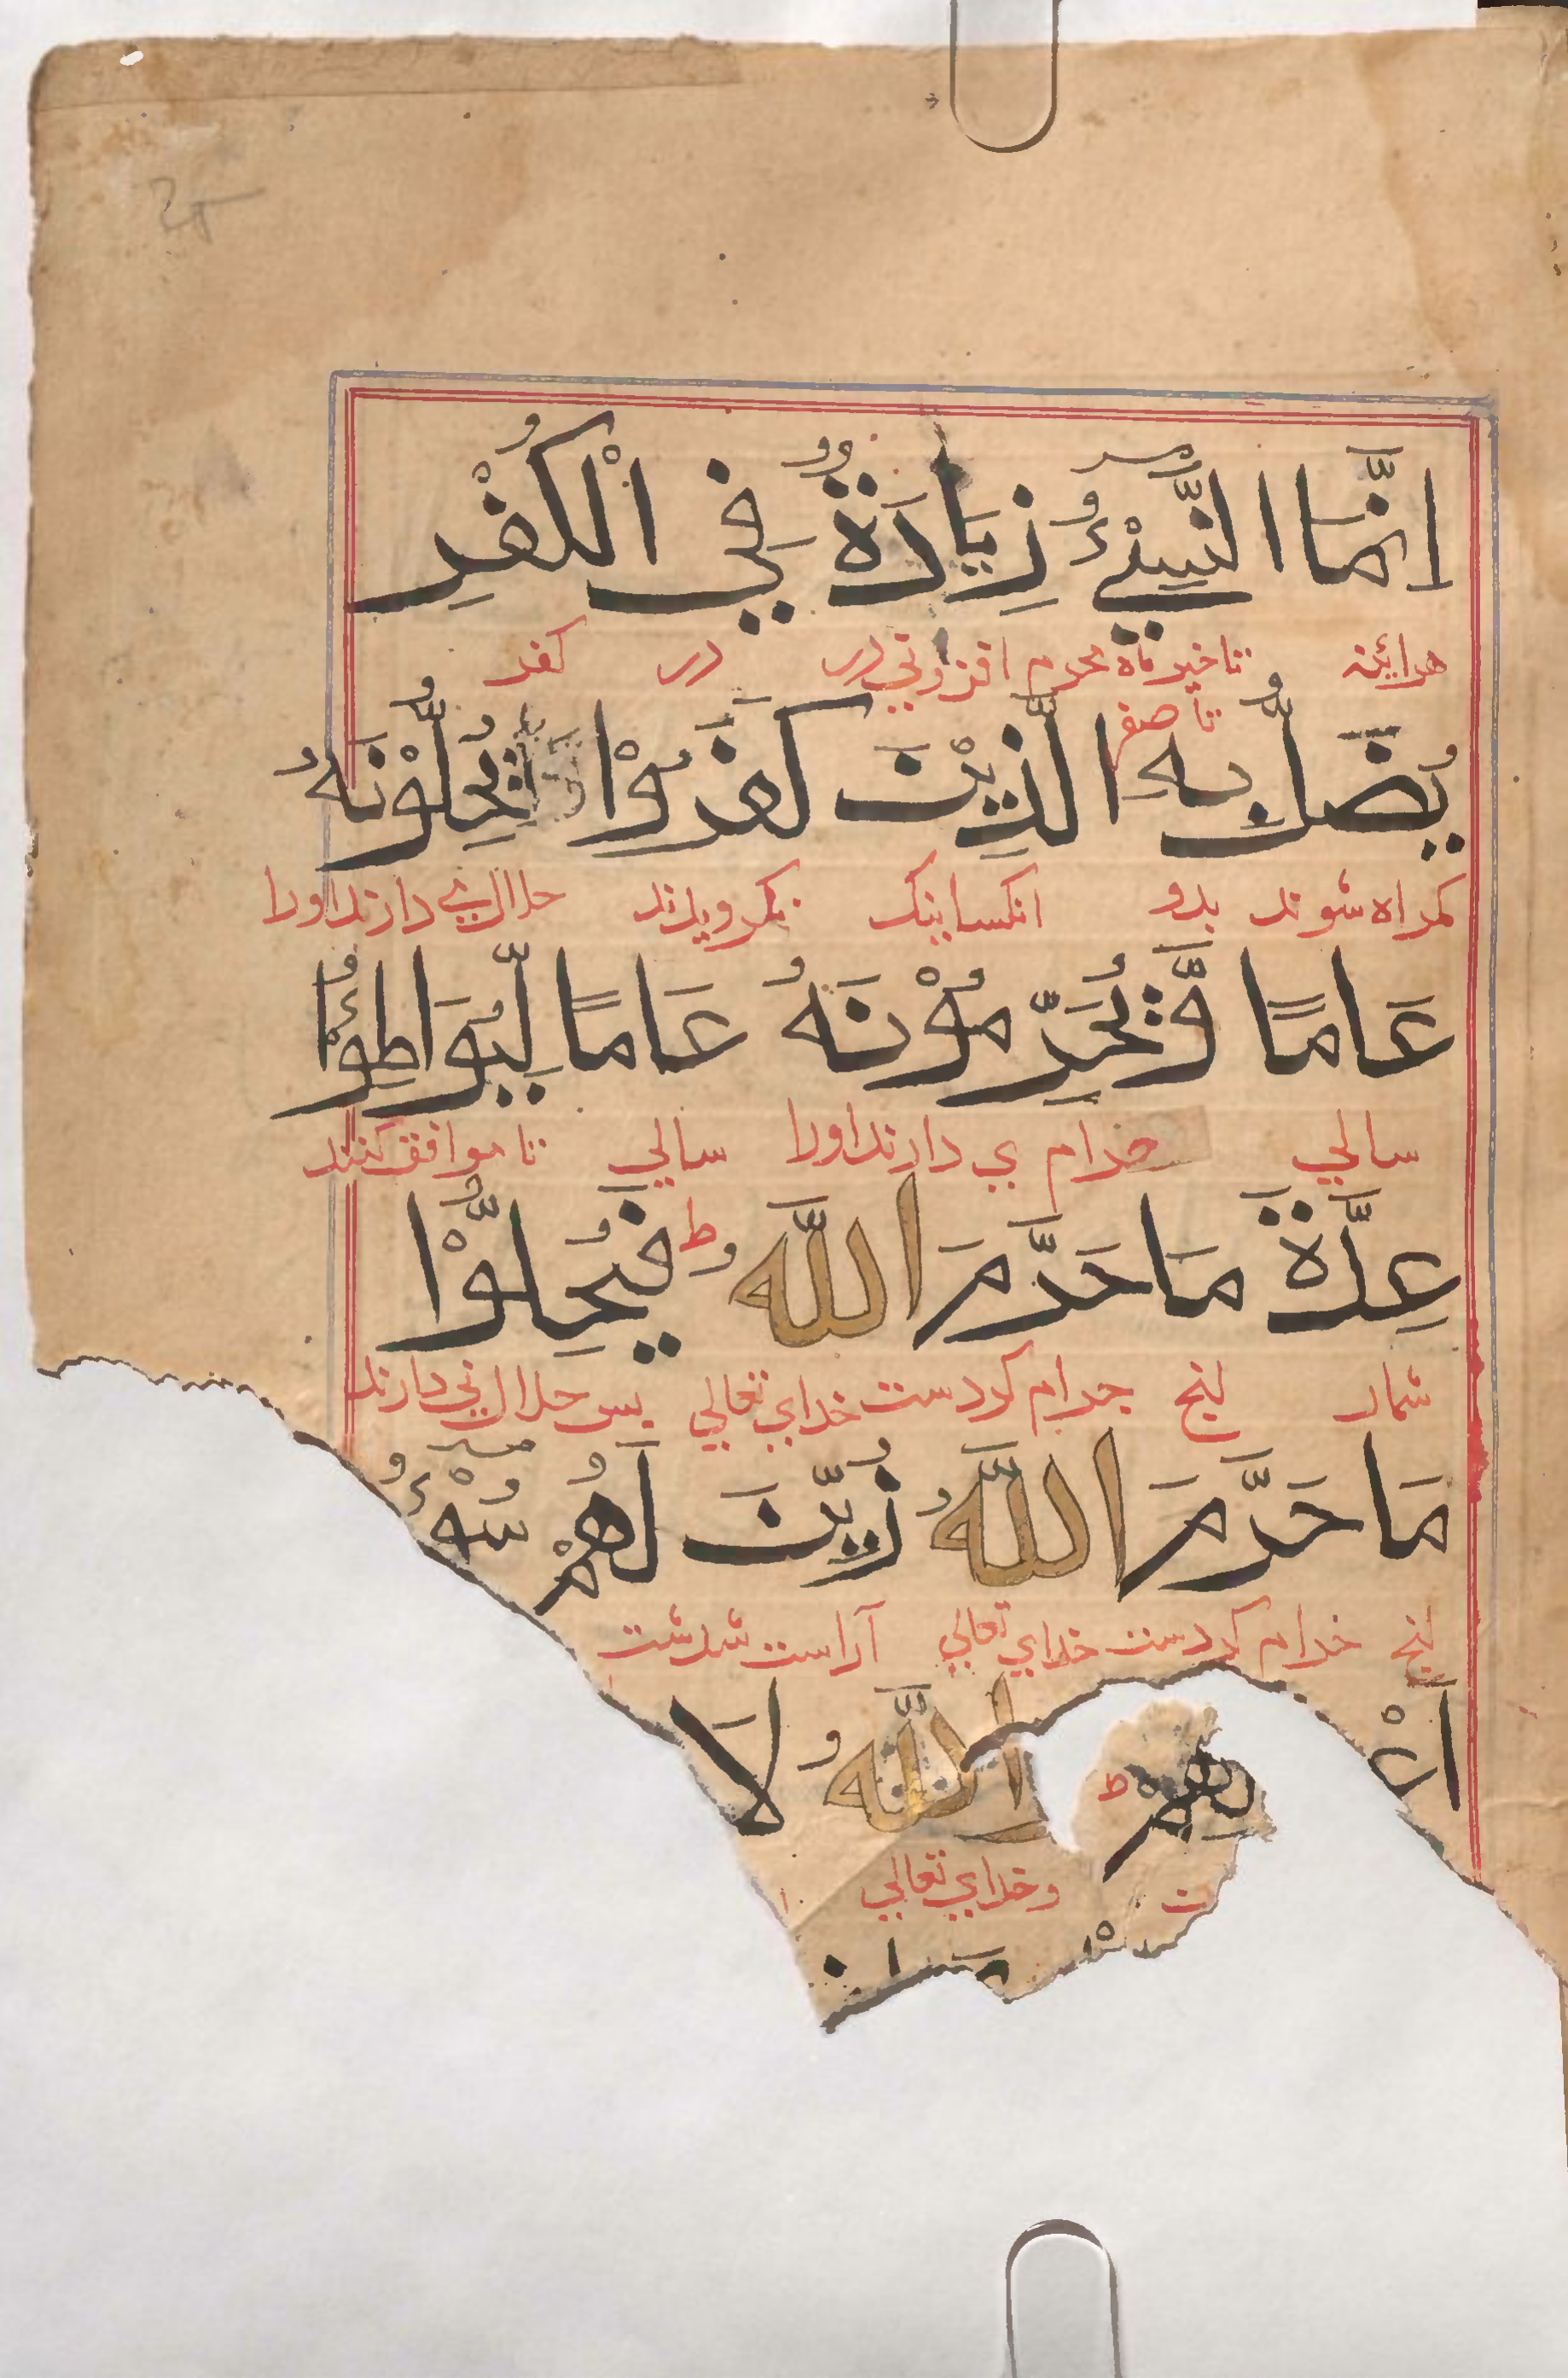 اِنَّمَا النَّسِيْٓءُ زِيَادَةٌ فِي الْكُفْرِ
هرآئینه تاخیر ماه محرم افزونی در در کفر
تا صفر
يُضَلُّ بِهِ الَّذِيْنَ كَفَرُوْا يُحِلُّوْنَهُ
کمراه شوند بدو انکسانیک نکرویدند حلال می دارند اورا
عَامًا وَّيُحَرِّمُوْنَهُ عَامًا لِّيُوَاطِئُوْا
سالي حرام ي دارند اورا سالي تا موافق کنند
عِدَّةَ مَا حَرَّمَ اللَّهُ ط فَيُحِلُّوْا
شمار انچ حرام کردست خداي تعالي پس حلال مي دارند
مَا حَرَّمَ اللَّهُ زُيِّنَ لَهُمْ سُوْٓءُ
انچ حرام کردست خداي تعالي آراست شدشت
لِهِمْ ط اللَّهُ لَا
وخداي تعالي